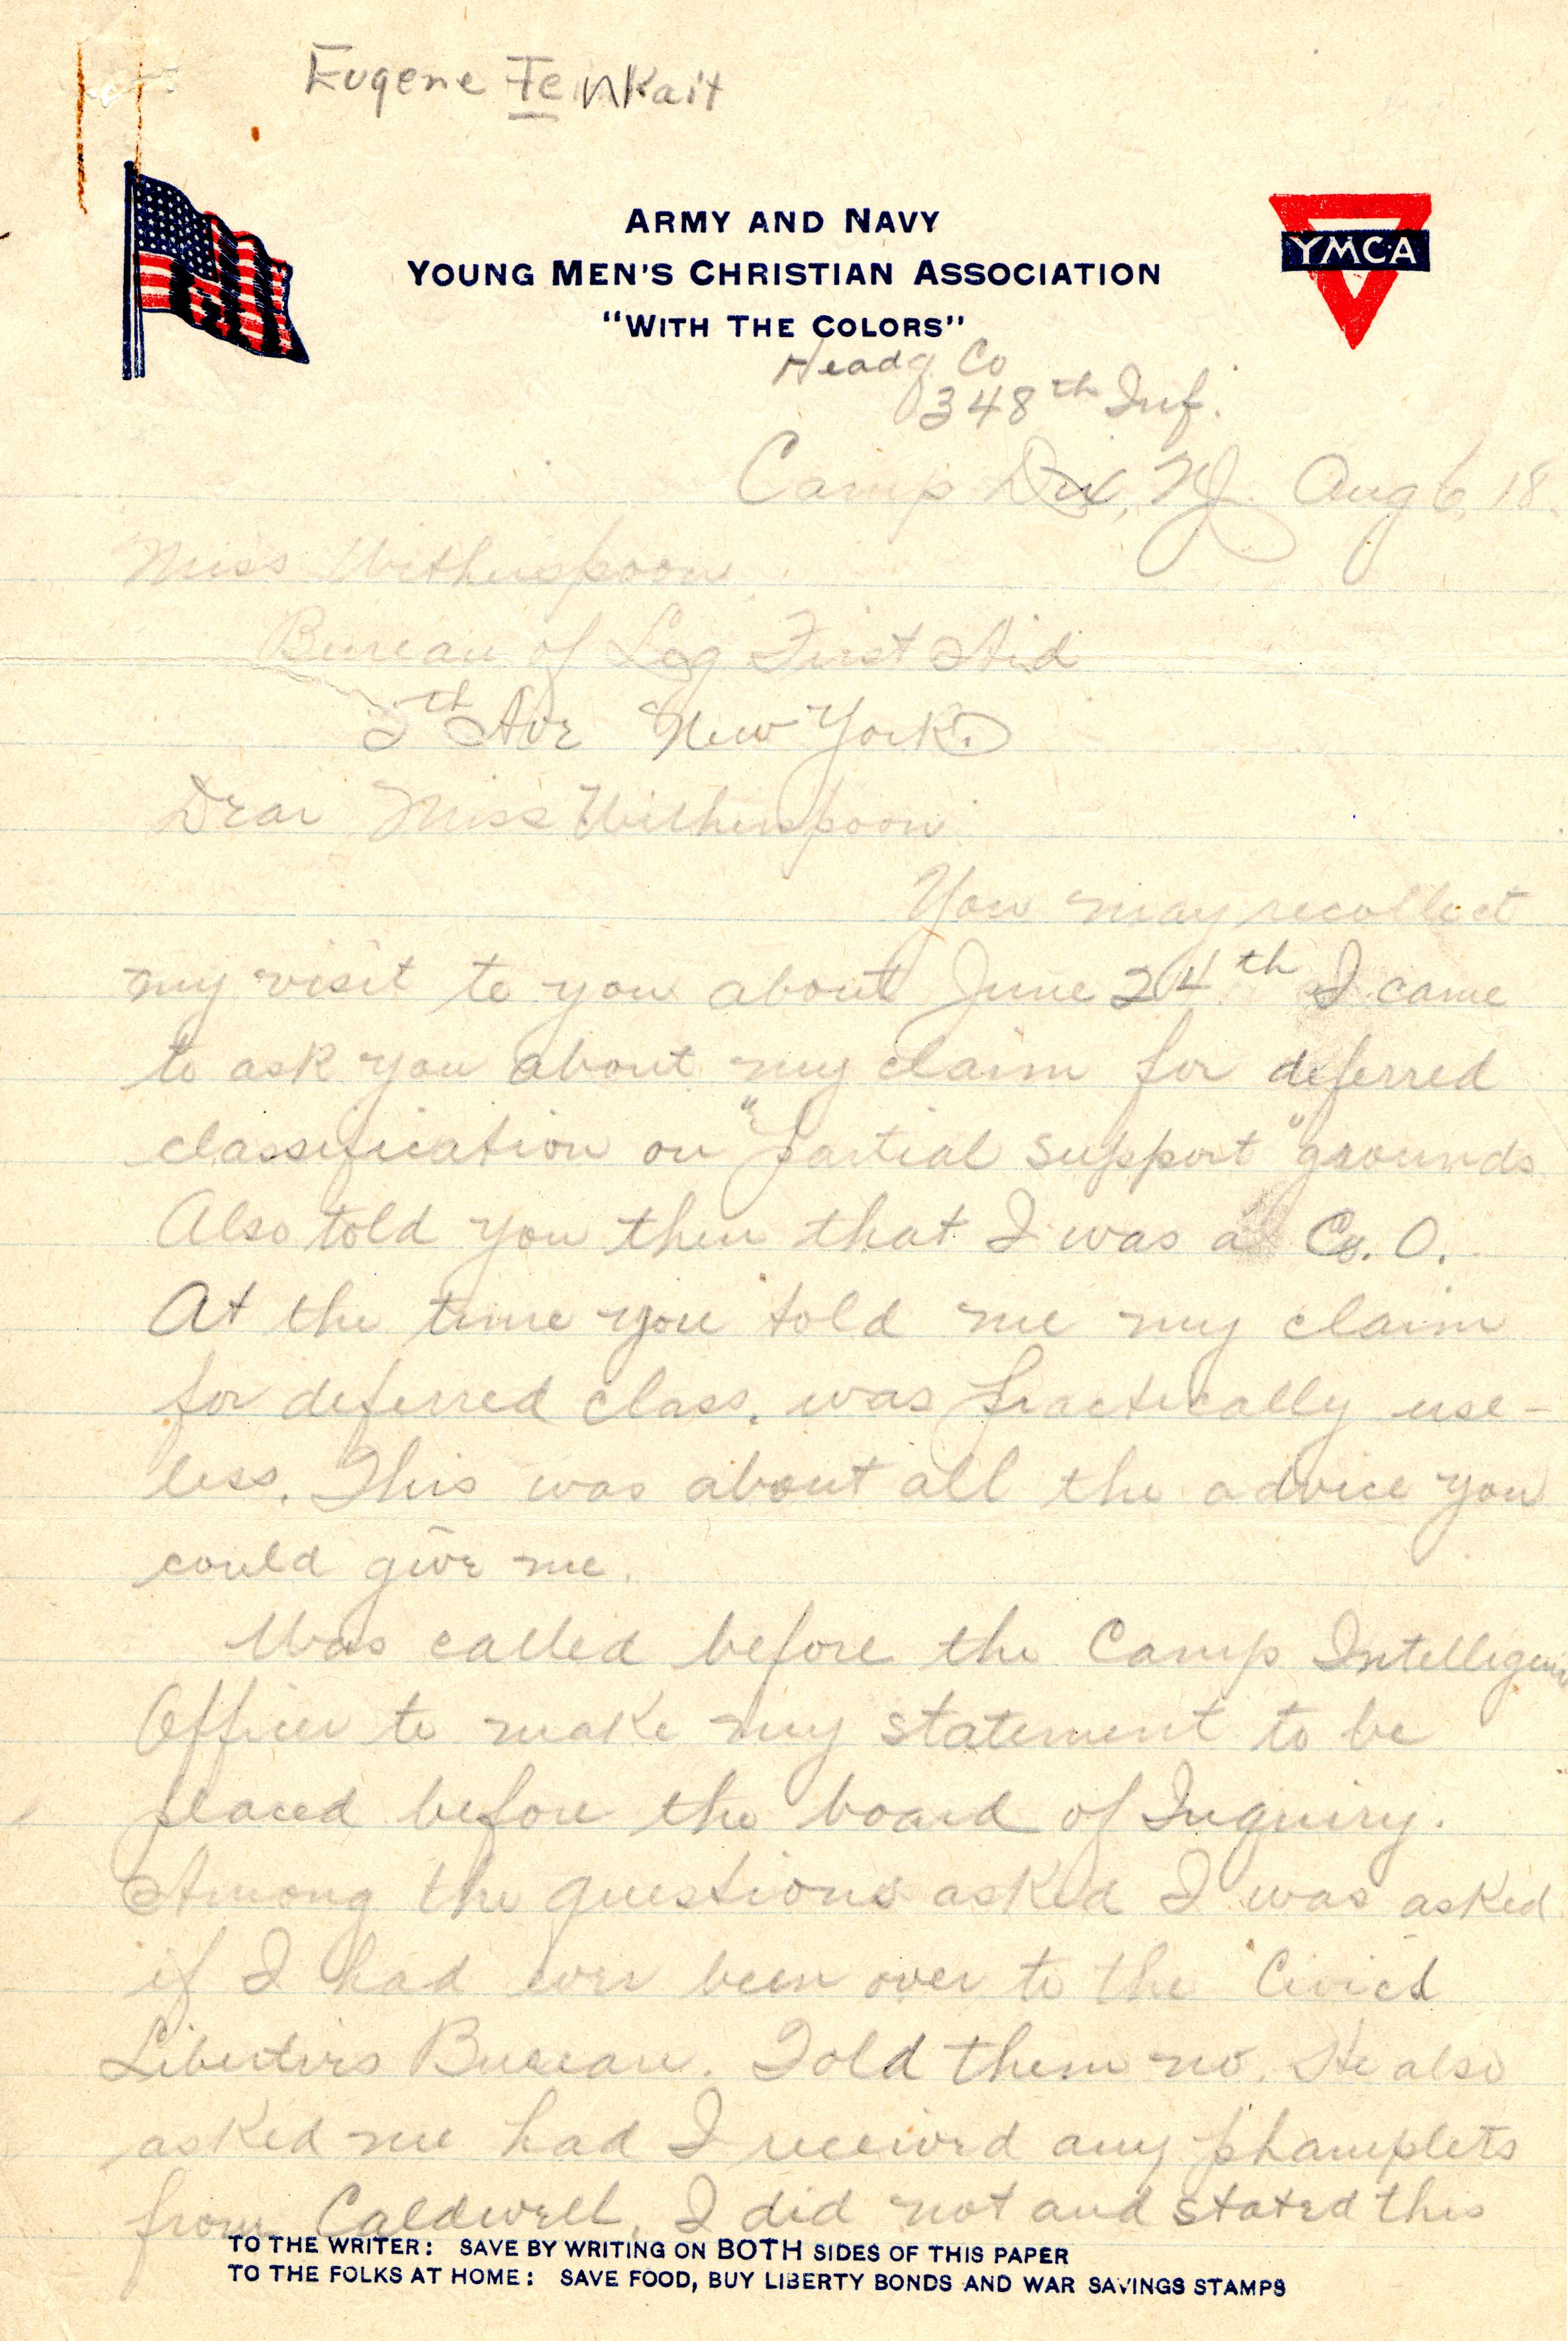 Eugene Feinkait
ARMY AND NAVY
YOUNG MEN'S CHRISTIAN ASSOCIATION
"WITH THE COLORS"
YMCA
Headq. Co
348th Inf.
Camp Dix, NJ. Aug 6, 18.
Miss Witherspoon
Bureau of Leg First Aid
5th Ave New York.
Dear Miss Witherspoon
You may recollect
my visit to you about June 24th I came
to ask you about my claim for deferred
classification on "partial support" grounds
Also told you then that I was a Co. O.
At the time you told me my claim
for deferred class. was practically use-
less. This was about all the advice you
could give me.
Was called before the Camp Intelligence
Officer to make my statement to be
placed before the board of Inquiry.
Among the questions asked I was asked
if I had ever been over to the Civicl
Liberties Bureau. Told them no. He also
asked me had I received any phamplets
from Caldwell. I did not and stated this
TO THE WRITER: SAVE BY WRITING ON BOTH SIDES OF THIS PAPER
TO THE FOLKS AT HOME: SAVE FOOD, BUY LIBERTY BONDS AND WAR SAVINGS STAMPS